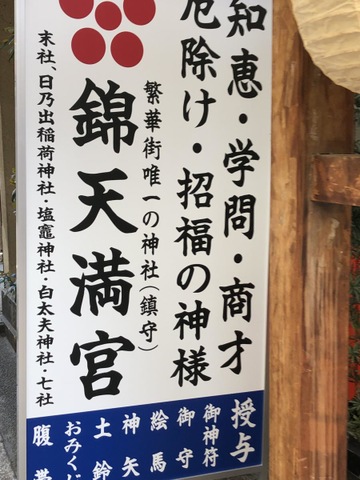 知恵・学問・商才
厄除け・招福の神様
繁華街唯一の神社(鎮守)
錦天満宮
末社、日乃出稲荷神社・塩竈神社・白太夫神社・七社
授与
御神符
御守
絵馬
神矢
土鈴
おみくじ
腹帯